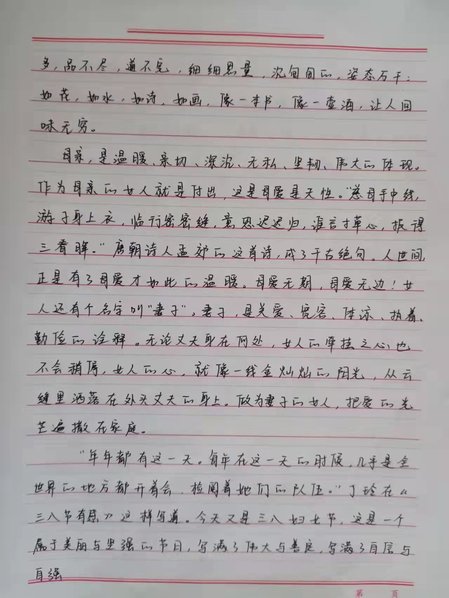 多，品不尽，道不完，细细思量，沉甸甸的，姿态万千：
如花，如水，如诗，如画，像一本书，像一壶酒，让人回
味无穷。
母亲，是温暖、亲切、深沉、无私、坚韧、伟大的体现。
作为母亲的女人就是付出，这是母爱是天性。“慈母手中线，
游子身上衣，临行密密缝，意恐迟迟归，谁言寸草心，报得
三春晖。”唐朝诗人孟郊的这首诗，成了千古绝句。人世间，
正是有了母爱才如此的温暖。母爱无期，母爱无边！女
人还有个名字叫“妻子”，妻子，是关爱、宽容、体凉、执着、
勤俭的诠释。无论丈夫身在何处，女人的牵挂之心也
不会稍停，女人的心，就像一线金灿灿的阳光，从云
缝里洒落在外头丈夫的身上。做为妻子的女人，把爱的光
芒遍撒在家庭。
“年年都有这一天。每年在这一天的时候，几乎是全
世界的地方都开着会，检阅着她们的队伍。”丁玲在《
三八节有感》这样写道。今天又是三八妇女节，这是一个
属于美丽与坚强的节日，写满了伟大与善良，写满了自信与
自强
第 页